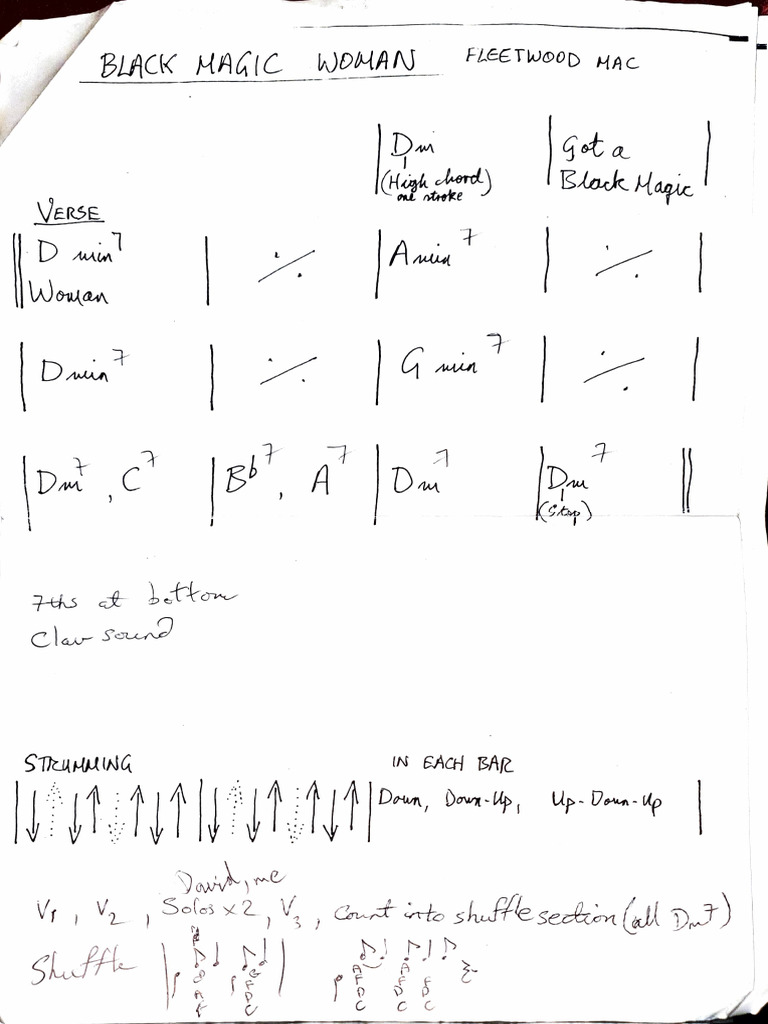 BLACK MAGIC WOMAN FLEETWOOD MAC
Dm Got a
(High chord) Black Magic
one stroke
VERSE
D min7 Amin7
Woman
Dmin7 G min7
Dm7, C7 Bb7, A7 Dm7 Dm7
(Stop)
7ths at bottom
Clav sound
STRUMMING IN EACH BAR
Down, Down-Up, Up-Down-Up
David, me
V1, V2, Solos x2, V3, Count into shuffle section (all Dm7)
Shuffle